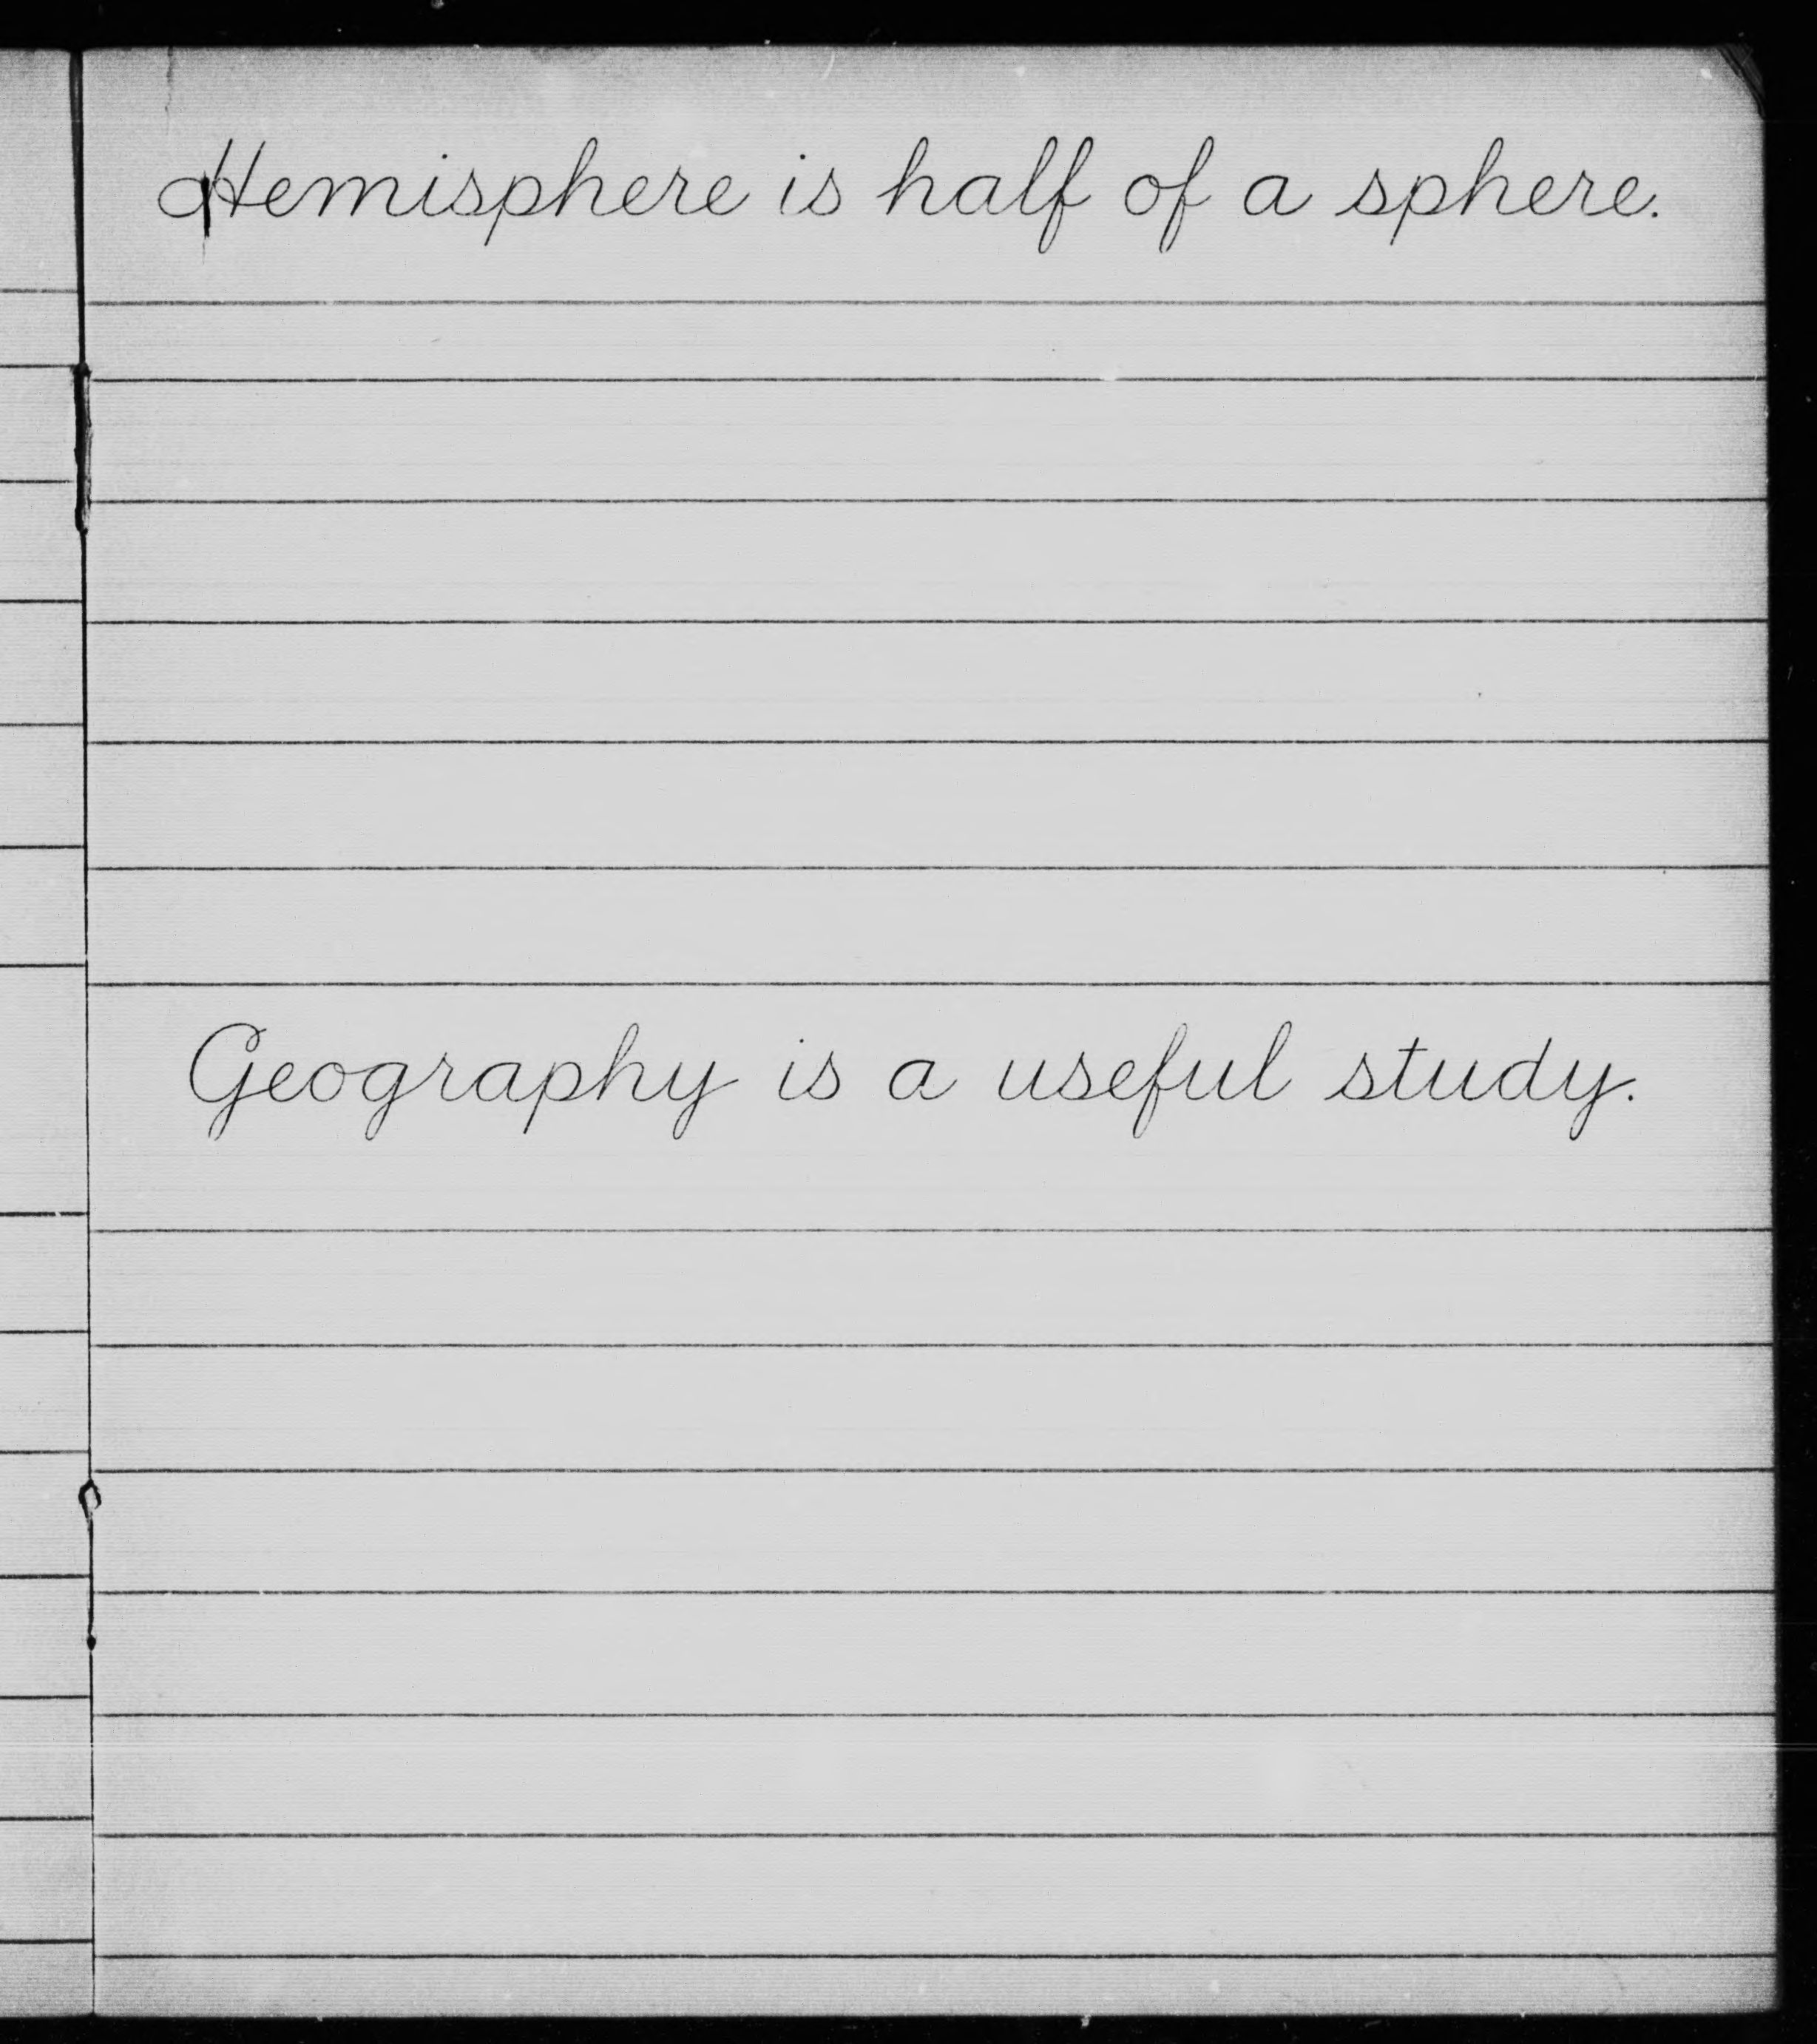 Hemisphere is half of a sphere.
Geography is a useful study.